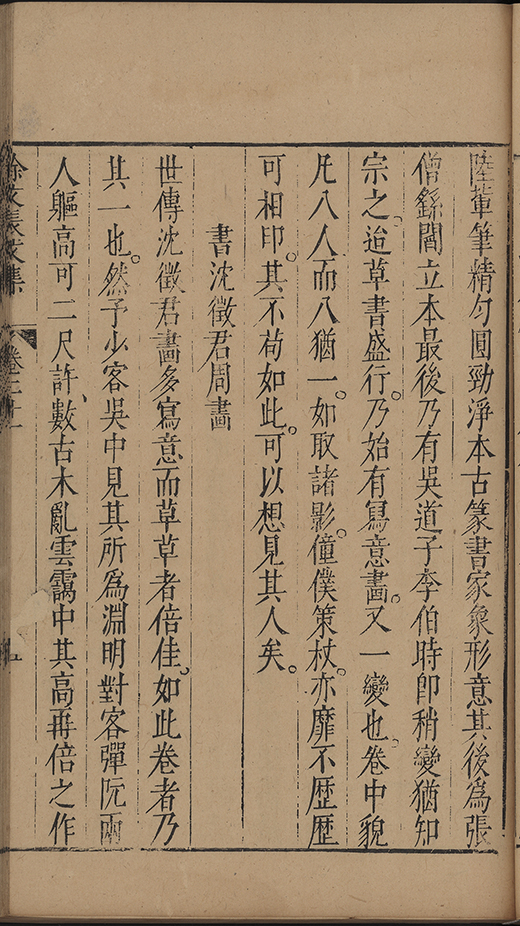 陸輩筆精勻圓勁淨本古篆書家象形意其後爲張
僧繇閻立本最後乃有吳道子李伯時卽稍變猶知
宗之迨草書盛行乃始有寫意畫又一變也卷中貌
凡八人而八猶一如取諸影僮僕策杖亦靡不歷歷
可相印其不苟如此可以想見其人矣
書沈徵君周畫
世傳沈徵君畫多寫意而草草者倍佳如此卷者乃
其一也然予少客吳中見其所爲淵明對客彈阮兩
人軀高可二尺許數古木亂雲靄中其高再倍之作
徐文長文集 卷二十一 五